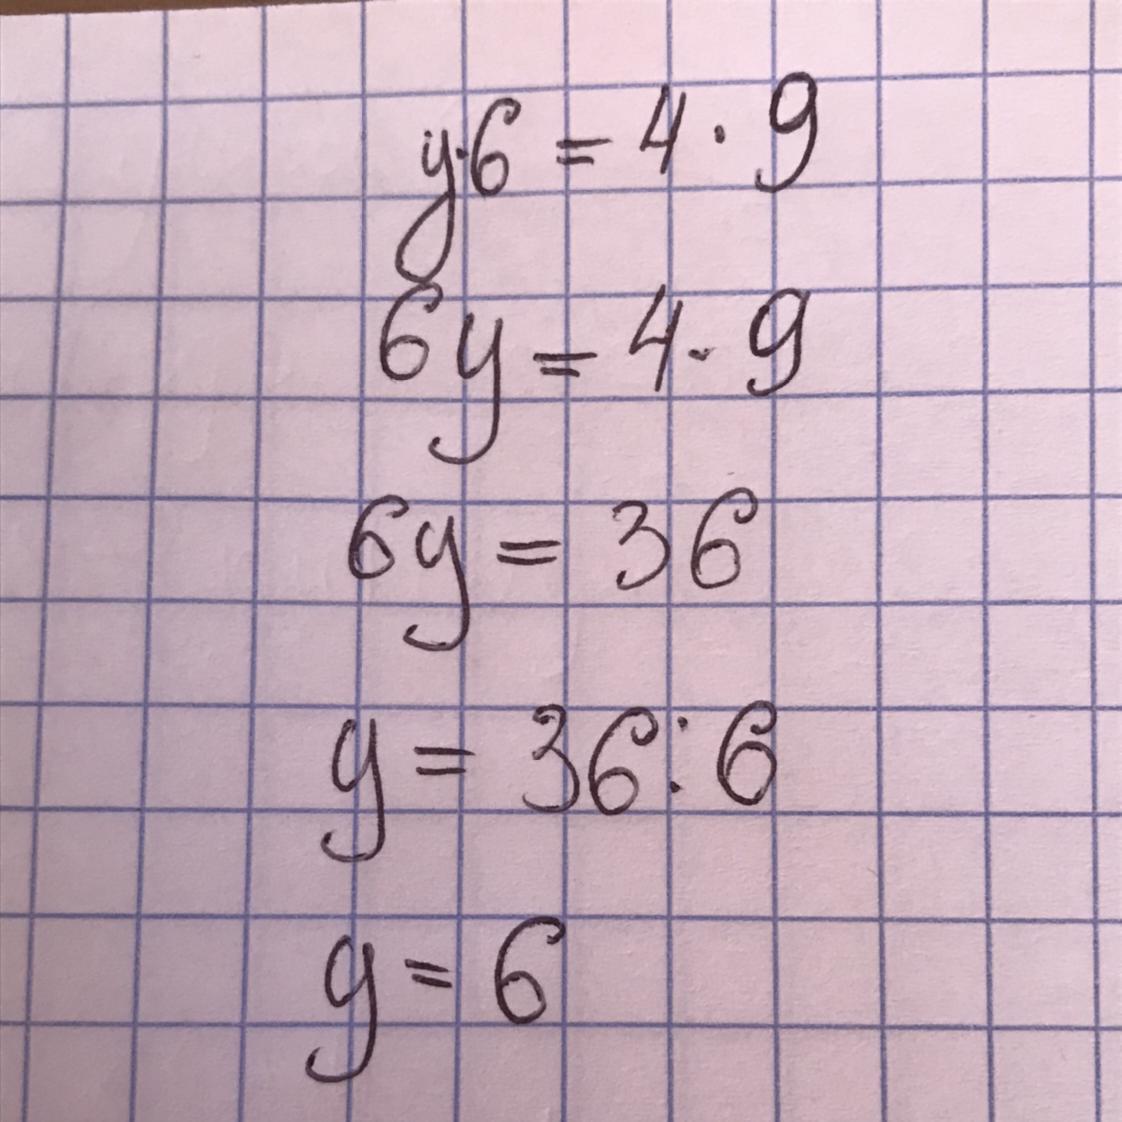 y·6 = 4 · 9
6y = 4 · 9
6y = 36
y = 36 : 6
y = 6